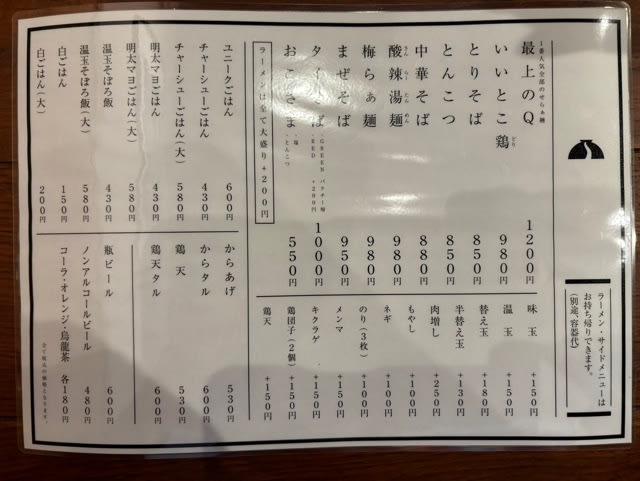 ラーメン・サイドメニューは
お持ち帰りできます。
(別途、容器代)
1番人気全部のせらぁ麺
最上のQ 1200円
いいとこ鶏 980円
どり
とりそば 850円
とんこつ 850円
中華そば 880円
酸辣湯麺 980円
さんらーたんめん
梅らぁ麺 980円
まぜそば 950円
そば 1000円
・GREEN パクチー増 +200円
・RED
おこさま 550円
・塩
・とんこつ
ラーメンは全て大盛り+200円
味玉 +150円
温玉 +150円
替え玉 +180円
半替え玉 +130円
肉増し +250円
もやし +100円
ネギ +100円
のり(3枚) +100円
メンマ +150円
キクラゲ +150円
鶏団子(2個) +150円
鶏天 +150円
ユニークごはん 600円
チャーシューごはん 430円
チャーシューごはん(大) 580円
明太マヨごはん 430円
明太マヨごはん(大) 580円
温玉そぼろ飯 430円
温玉そぼろ飯(大) 580円
白ごはん 150円
白ごはん(大) 200円
からあげ 530円
からタル 600円
鶏天 530円
鶏天タル 600円
瓶ビール 600円
ノンアルコールビール 480円
コーラ・オレンジ・烏龍茶 各180円
全て税込の価格となります。